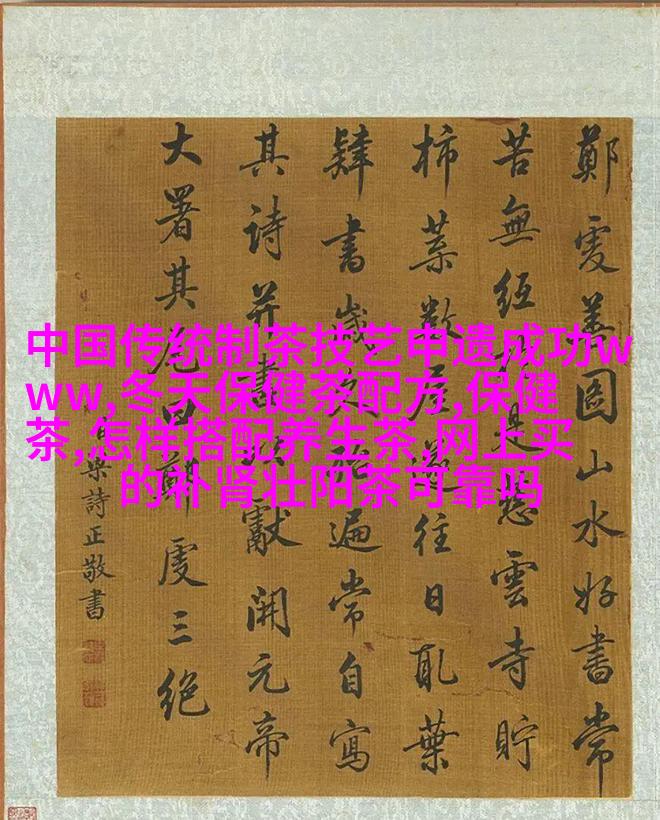 鄭虔善圖山水好書常
苦無紙於是慈雲寺貯
柿葉數屋遂往日取葉
肄書歲久殆遍常自寫
其詩并書以獻開元帝
大署其尾曰鄭虔三絕
臣梁詩正敬書
中国传统制茶技艺申遗成功w
ww,冬天保健茶配方,保健
茶,怎样搭配养生茶,网上买
的补肾壮阳茶可靠吗